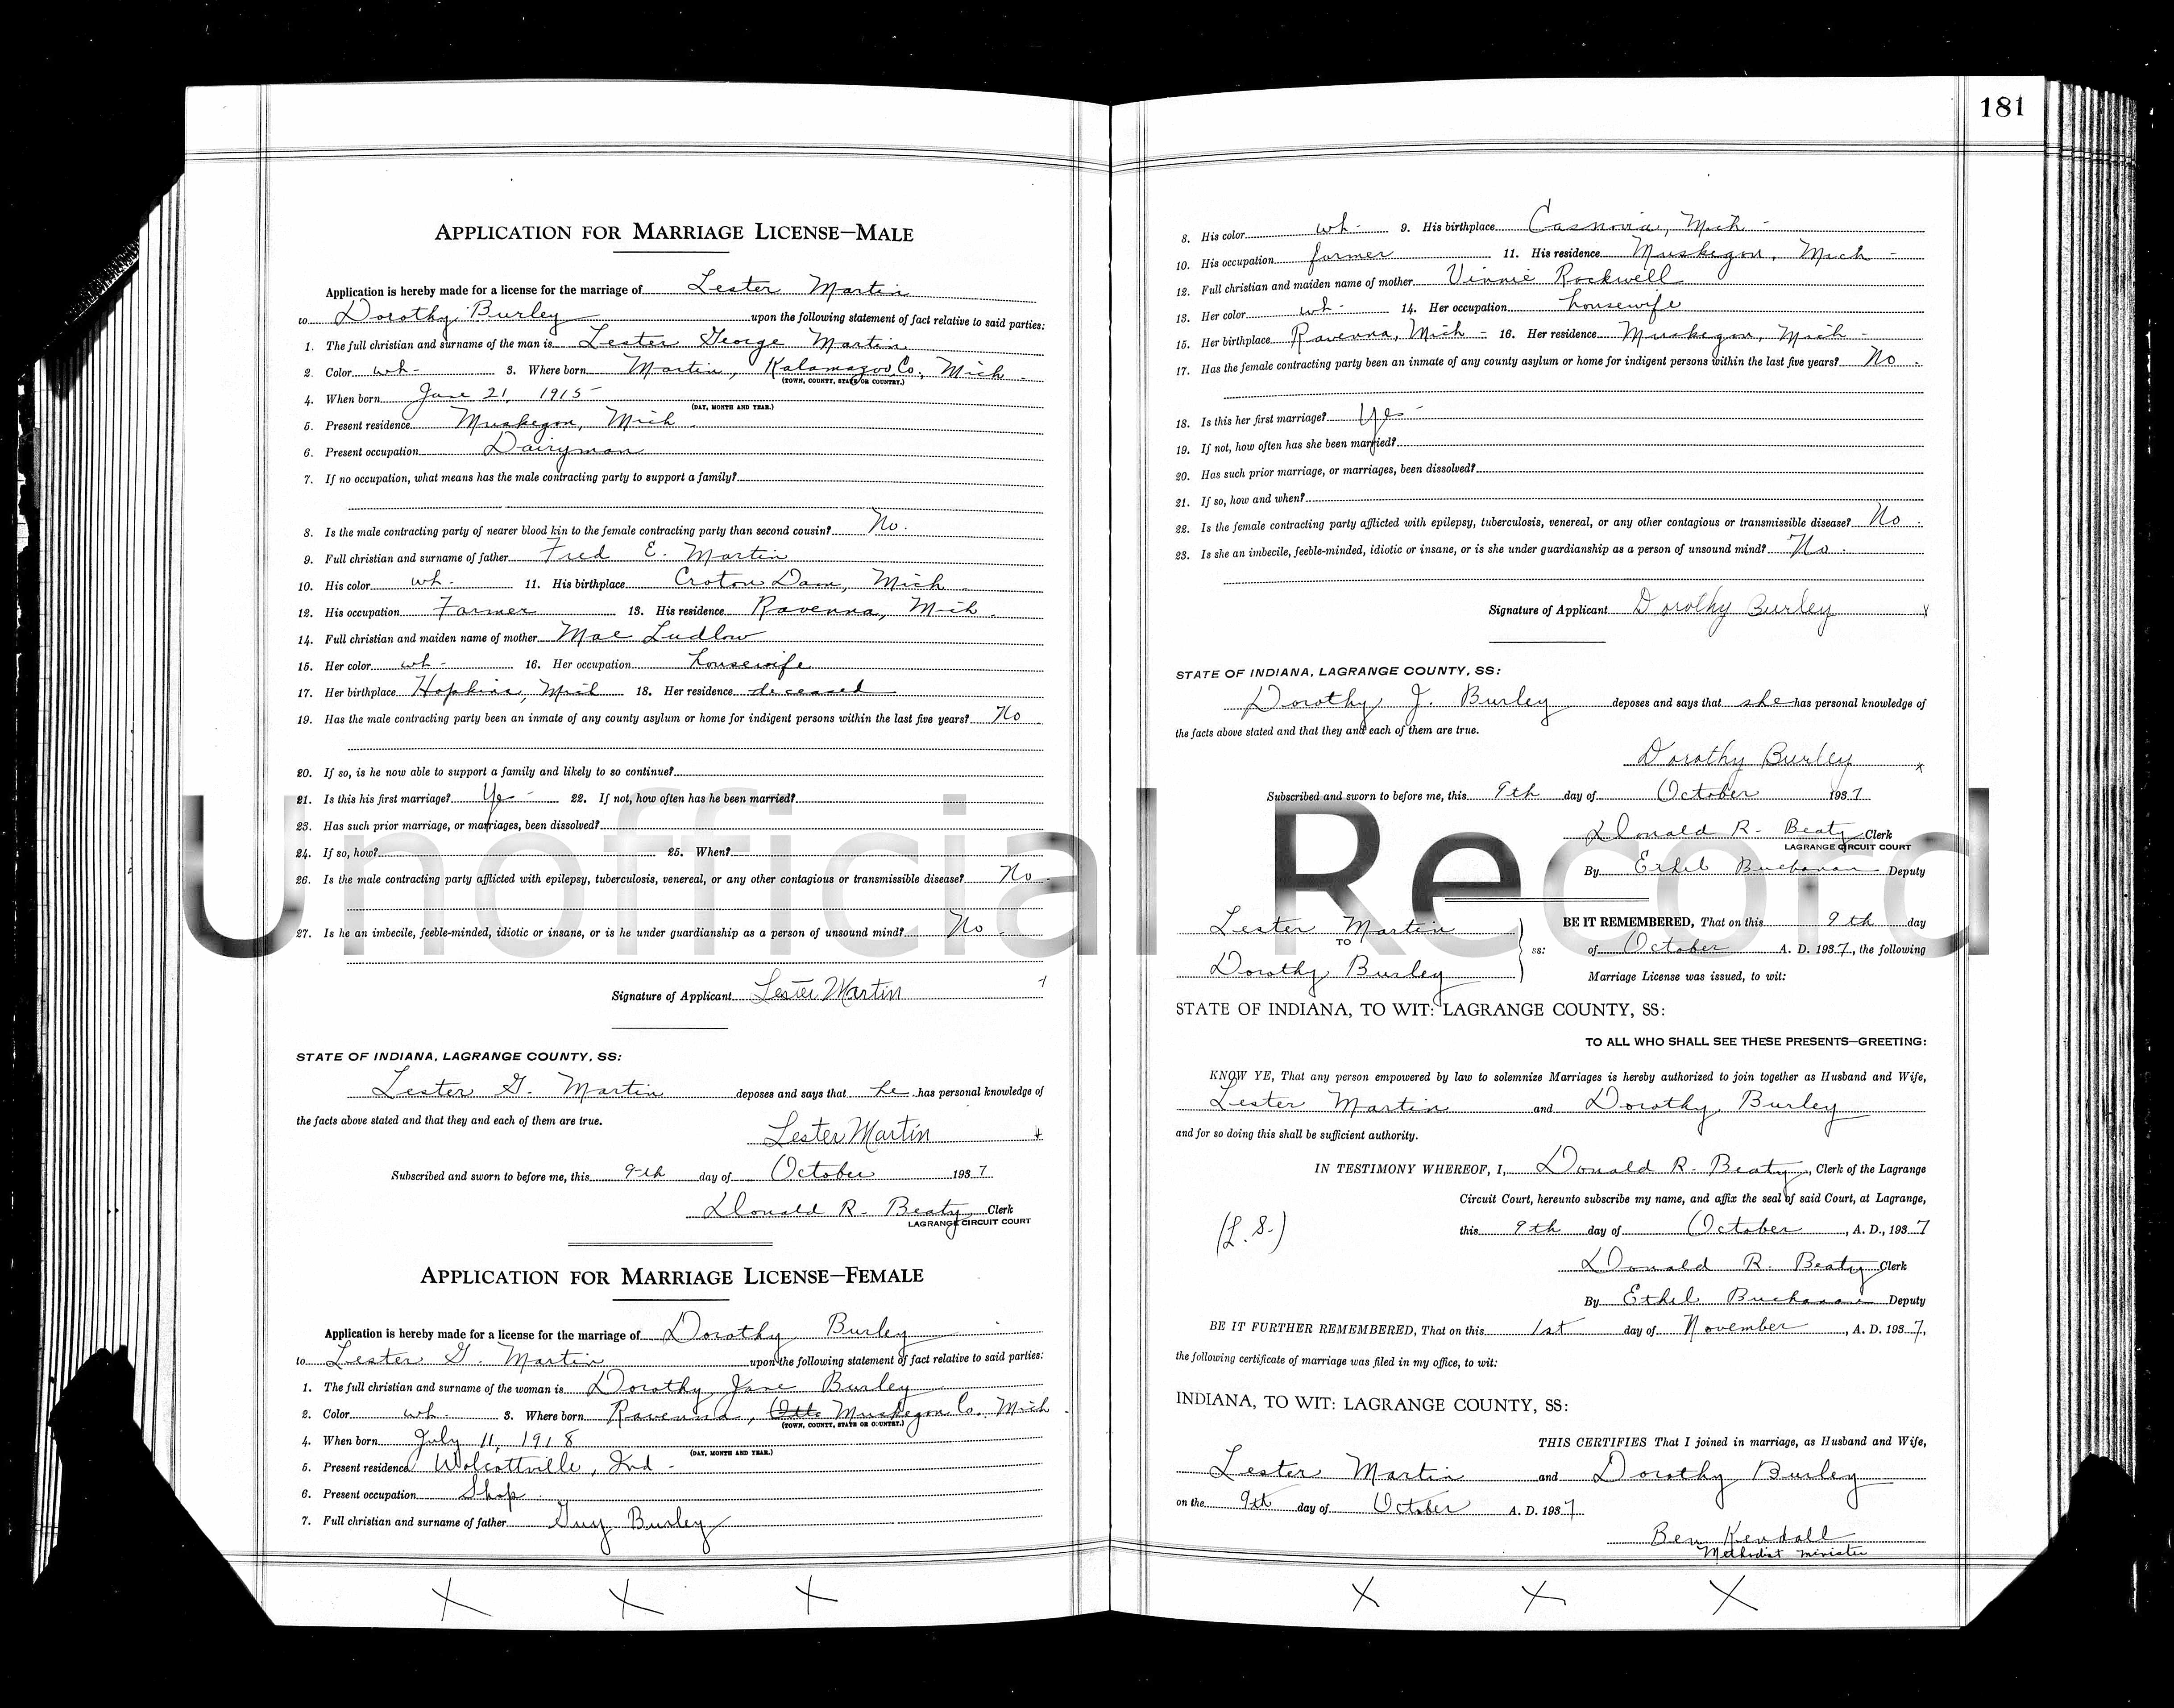 181
APPLICATION FOR MARRIAGE LICENSE—MALE
Application is hereby made for a license for the marriage of Lester Martin
to Dorothy Burley upon the following statement of fact relative to said parties:
1. The full christian and surname of the man is Lester George Martin
2. Color wh- 3. Where born Martin, Kalamazoo Co., Mich
(TOWN, COUNTY, STATE OR COUNTRY.)
4. When born June 21, 1915
(DAY, MONTH AND YEAR.)
5. Present residence Muskegon, Mich
6. Present occupation Dairyman
7. If no occupation, what means has the male contracting party to support a family?
8. Is the male contracting party of nearer blood kin to the female contracting party than second cousin? No.
9. Full christian and surname of father Fred E. Martin
10. His color wh- 11. His birthplace Croton Dam, Mich.
12. His occupation Farmer 13. His residence Ravenna, Mich.
14. Full christian and maiden name of mother Mae Ludlow
15. Her color wh- 16. Her occupation housewife
17. Her birthplace Hopkins, Mich 18. Her residence deceased
19. Has the male contracting party been an inmate of any county asylum or home for indigent persons within the last five years? No.
20. If so, is he now able to support a family and likely to so continue?
21. Is this his first marriage? Yes- 22. If not, how often has he been married?
23. Has such prior marriage, or marriages, been dissolved?
24. If so, how? 25. When?
26. Is the male contracting party afflicted with epilepsy, tuberculosis, venereal, or any other contagious or transmissible disease? No.
27. Is he an imbecile, feeble-minded, idiotic or insane, or is he under guardianship as a person of unsound mind? No.
Signature of Applicant Lester Martin
STATE OF INDIANA, LAGRANGE COUNTY, SS:
Lester G. Martin deposes and says that he has personal knowledge of
the facts above stated and that they and each of them are true.
Lester Martin x
Subscribed and sworn to before me, this 9th day of October 1937
Donald R. Beaty, Clerk
LAGRANGE CIRCUIT COURT
APPLICATION FOR MARRIAGE LICENSE—FEMALE
Application is hereby made for a license for the marriage of Dorothy Burley
to Lester G. Martin upon the following statement of fact relative to said parties:
1. The full christian and surname of the woman is Dorothy Jane Burley
2. Color wh. 3. Where born Ravenna, Muskegon Co., Mich
(TOWN, COUNTY, STATE OR COUNTRY.)
4. When born July 11, 1918
(DAY, MONTH AND YEAR.)
5. Present residence Wolcottville, Ind -
6. Present occupation Shop.
7. Full christian and surname of father Guy Burley
8. His color wh- 9. His birthplace Casnovia, Mich -
10. His occupation farmer 11. His residence Muskegon, Mich -
12. Full christian and maiden name of mother Vinnie Rockwell
13. Her color wh- 14. Her occupation housewife
15. Her birthplace Ravenna, Mich - 16. Her residence Muskegon, Mich -
17. Has the female contracting party been an inmate of any county asylum or home for indigent persons within the last five years? No.
18. Is this her first marriage? Yes-
19. If not, how often has she been married?
20. Has such prior marriage, or marriages, been dissolved?
21. If so, how and when?
22. Is the female contracting party afflicted with epilepsy, tuberculosis, venereal, or any other contagious or transmissible disease? No.
23. Is she an imbecile, feeble-minded, idiotic or insane, or is she under guardianship as a person of unsound mind? No.
Signature of Applicant Dorothy Burley x
STATE OF INDIANA, LAGRANGE COUNTY, SS:
Dorothy J. Burley deposes and says that she has personal knowledge of
the facts above stated and that they and each of them are true.
Dorothy Burley x
Subscribed and sworn to before me, this 9th day of October 1937
Donald R. Beaty Clerk
LAGRANGE CIRCUIT COURT
By Ethel Buchanan Deputy
Lester Martin
TO
Dorothy Burley
ss:
BE IT REMEMBERED, That on this 9th day
of October A. D. 1937, the following
Marriage License was issued, to wit:
STATE OF INDIANA, TO WIT: LAGRANGE COUNTY, SS:
TO ALL WHO SHALL SEE THESE PRESENTS—GREETING:
KNOW YE, That any person empowered by law to solemnize Marriages is hereby authorized to join together as Husband and Wife,
Lester Martin and Dorothy Burley
and for so doing this shall be sufficient authority.
IN TESTIMONY WHEREOF, I, Donald R. Beaty, Clerk of the Lagrange
Circuit Court, hereunto subscribe my name, and affix the seal of said Court, at Lagrange,
(L. S.)
this 9th day of October, A. D., 1937
Donald R. Beaty Clerk
By Ethel Buchanan Deputy
BE IT FURTHER REMEMBERED, That on this 1st day of November, A. D. 1937,
the following certificate of marriage was filed in my office, to wit:
INDIANA, TO WIT: LAGRANGE COUNTY, SS:
THIS CERTIFIES That I joined in marriage, as Husband and Wife,
Lester Martin and Dorothy Burley
on the 9th day of October A. D. 1937
Ben Kendall
Methodist minister
X X X
X X X
Unofficial Record